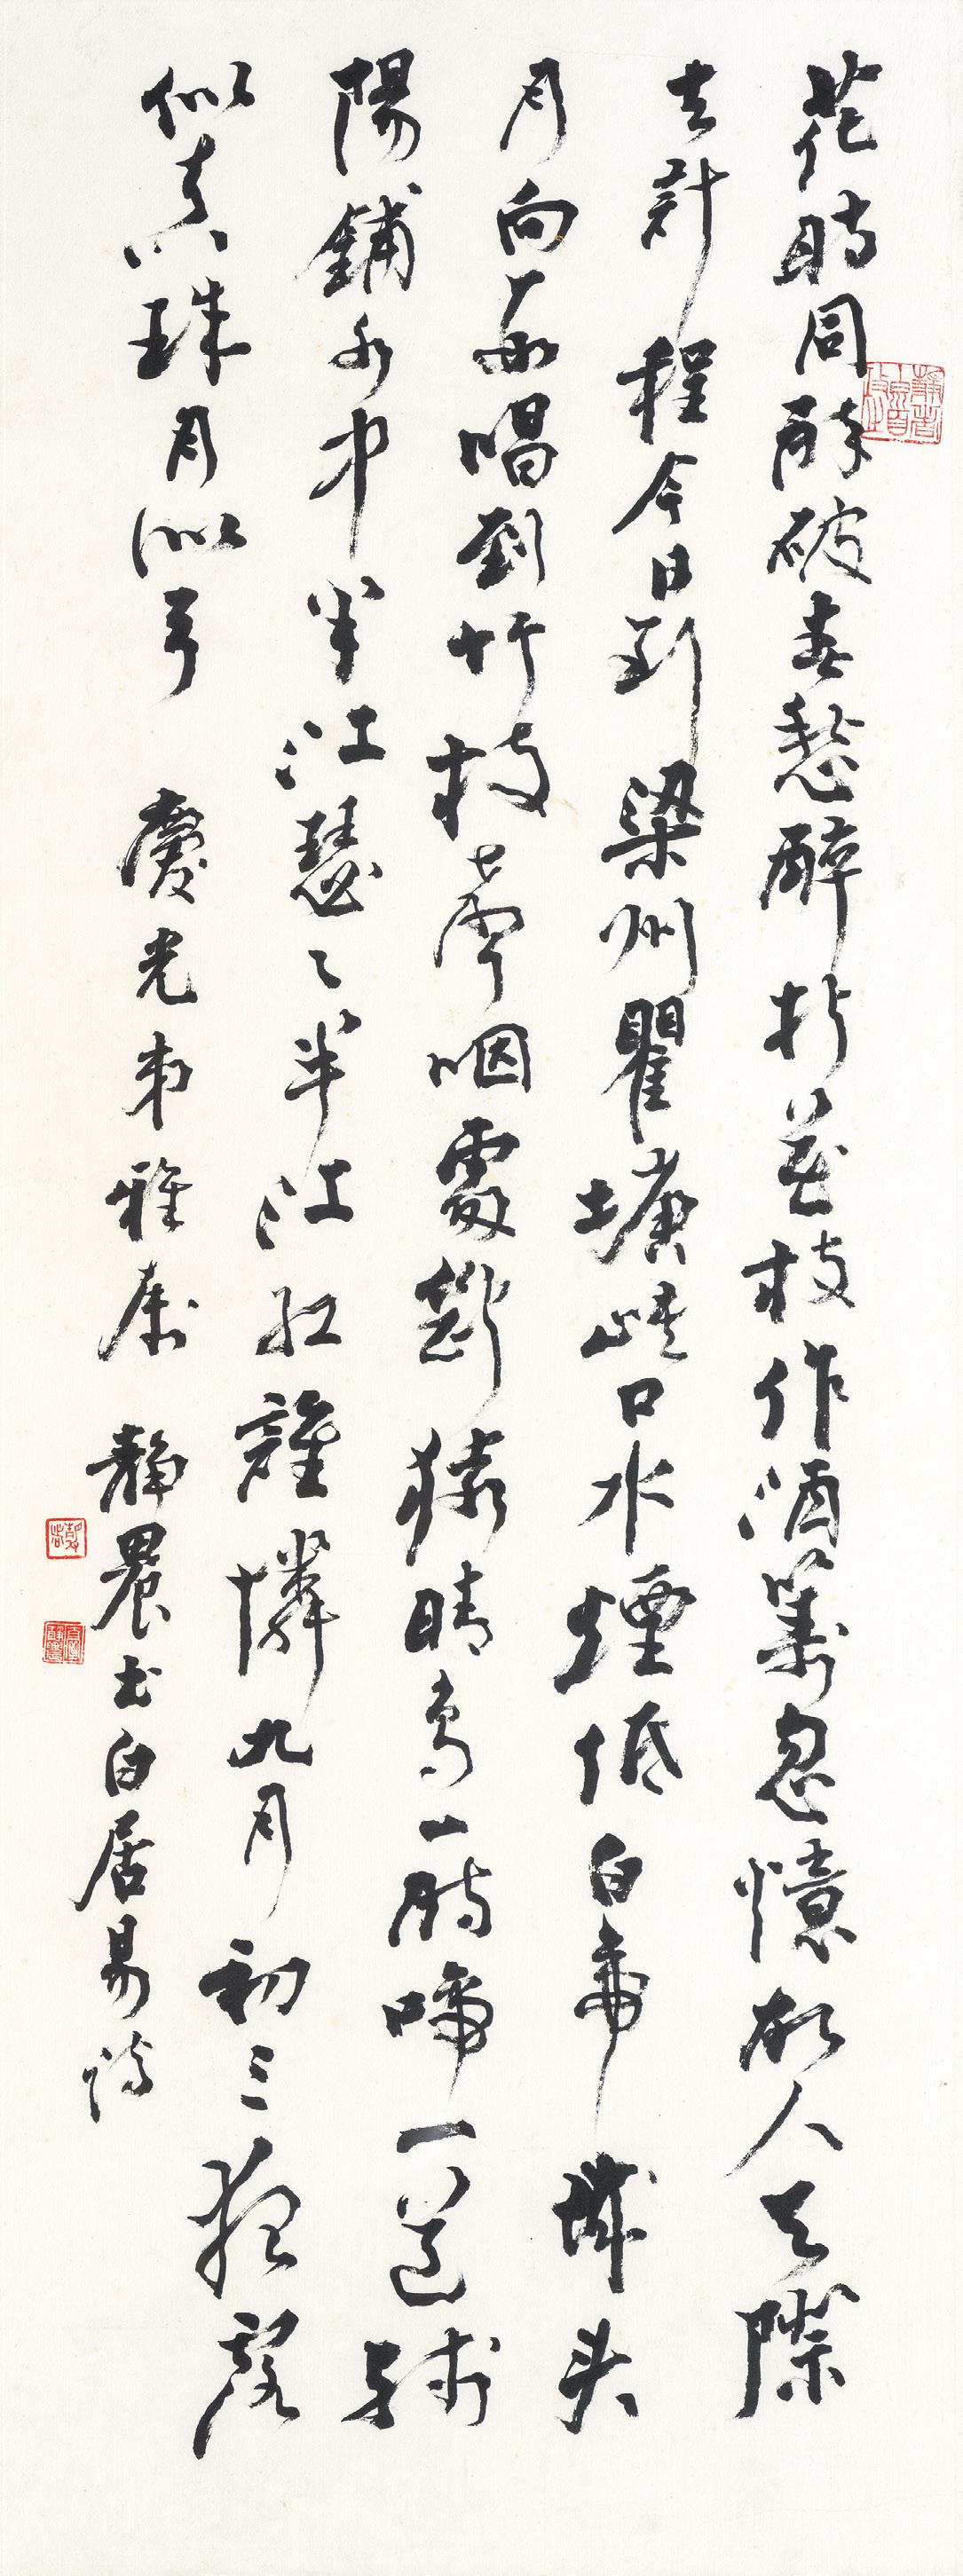 花時同醉破春愁醉折花枝作酒籌忽憶故人天際
去計程今日到梁州瞿塘峽口水煙低白帝城头
月向西唱到竹枝聲咽處斷猿晴鳥一時啼一道殘
陽鋪水中半江瑟〻半江紅誰憐九月初三夜露
似真珠月似弓 慶光弟雅屬 靜農书白居易詩